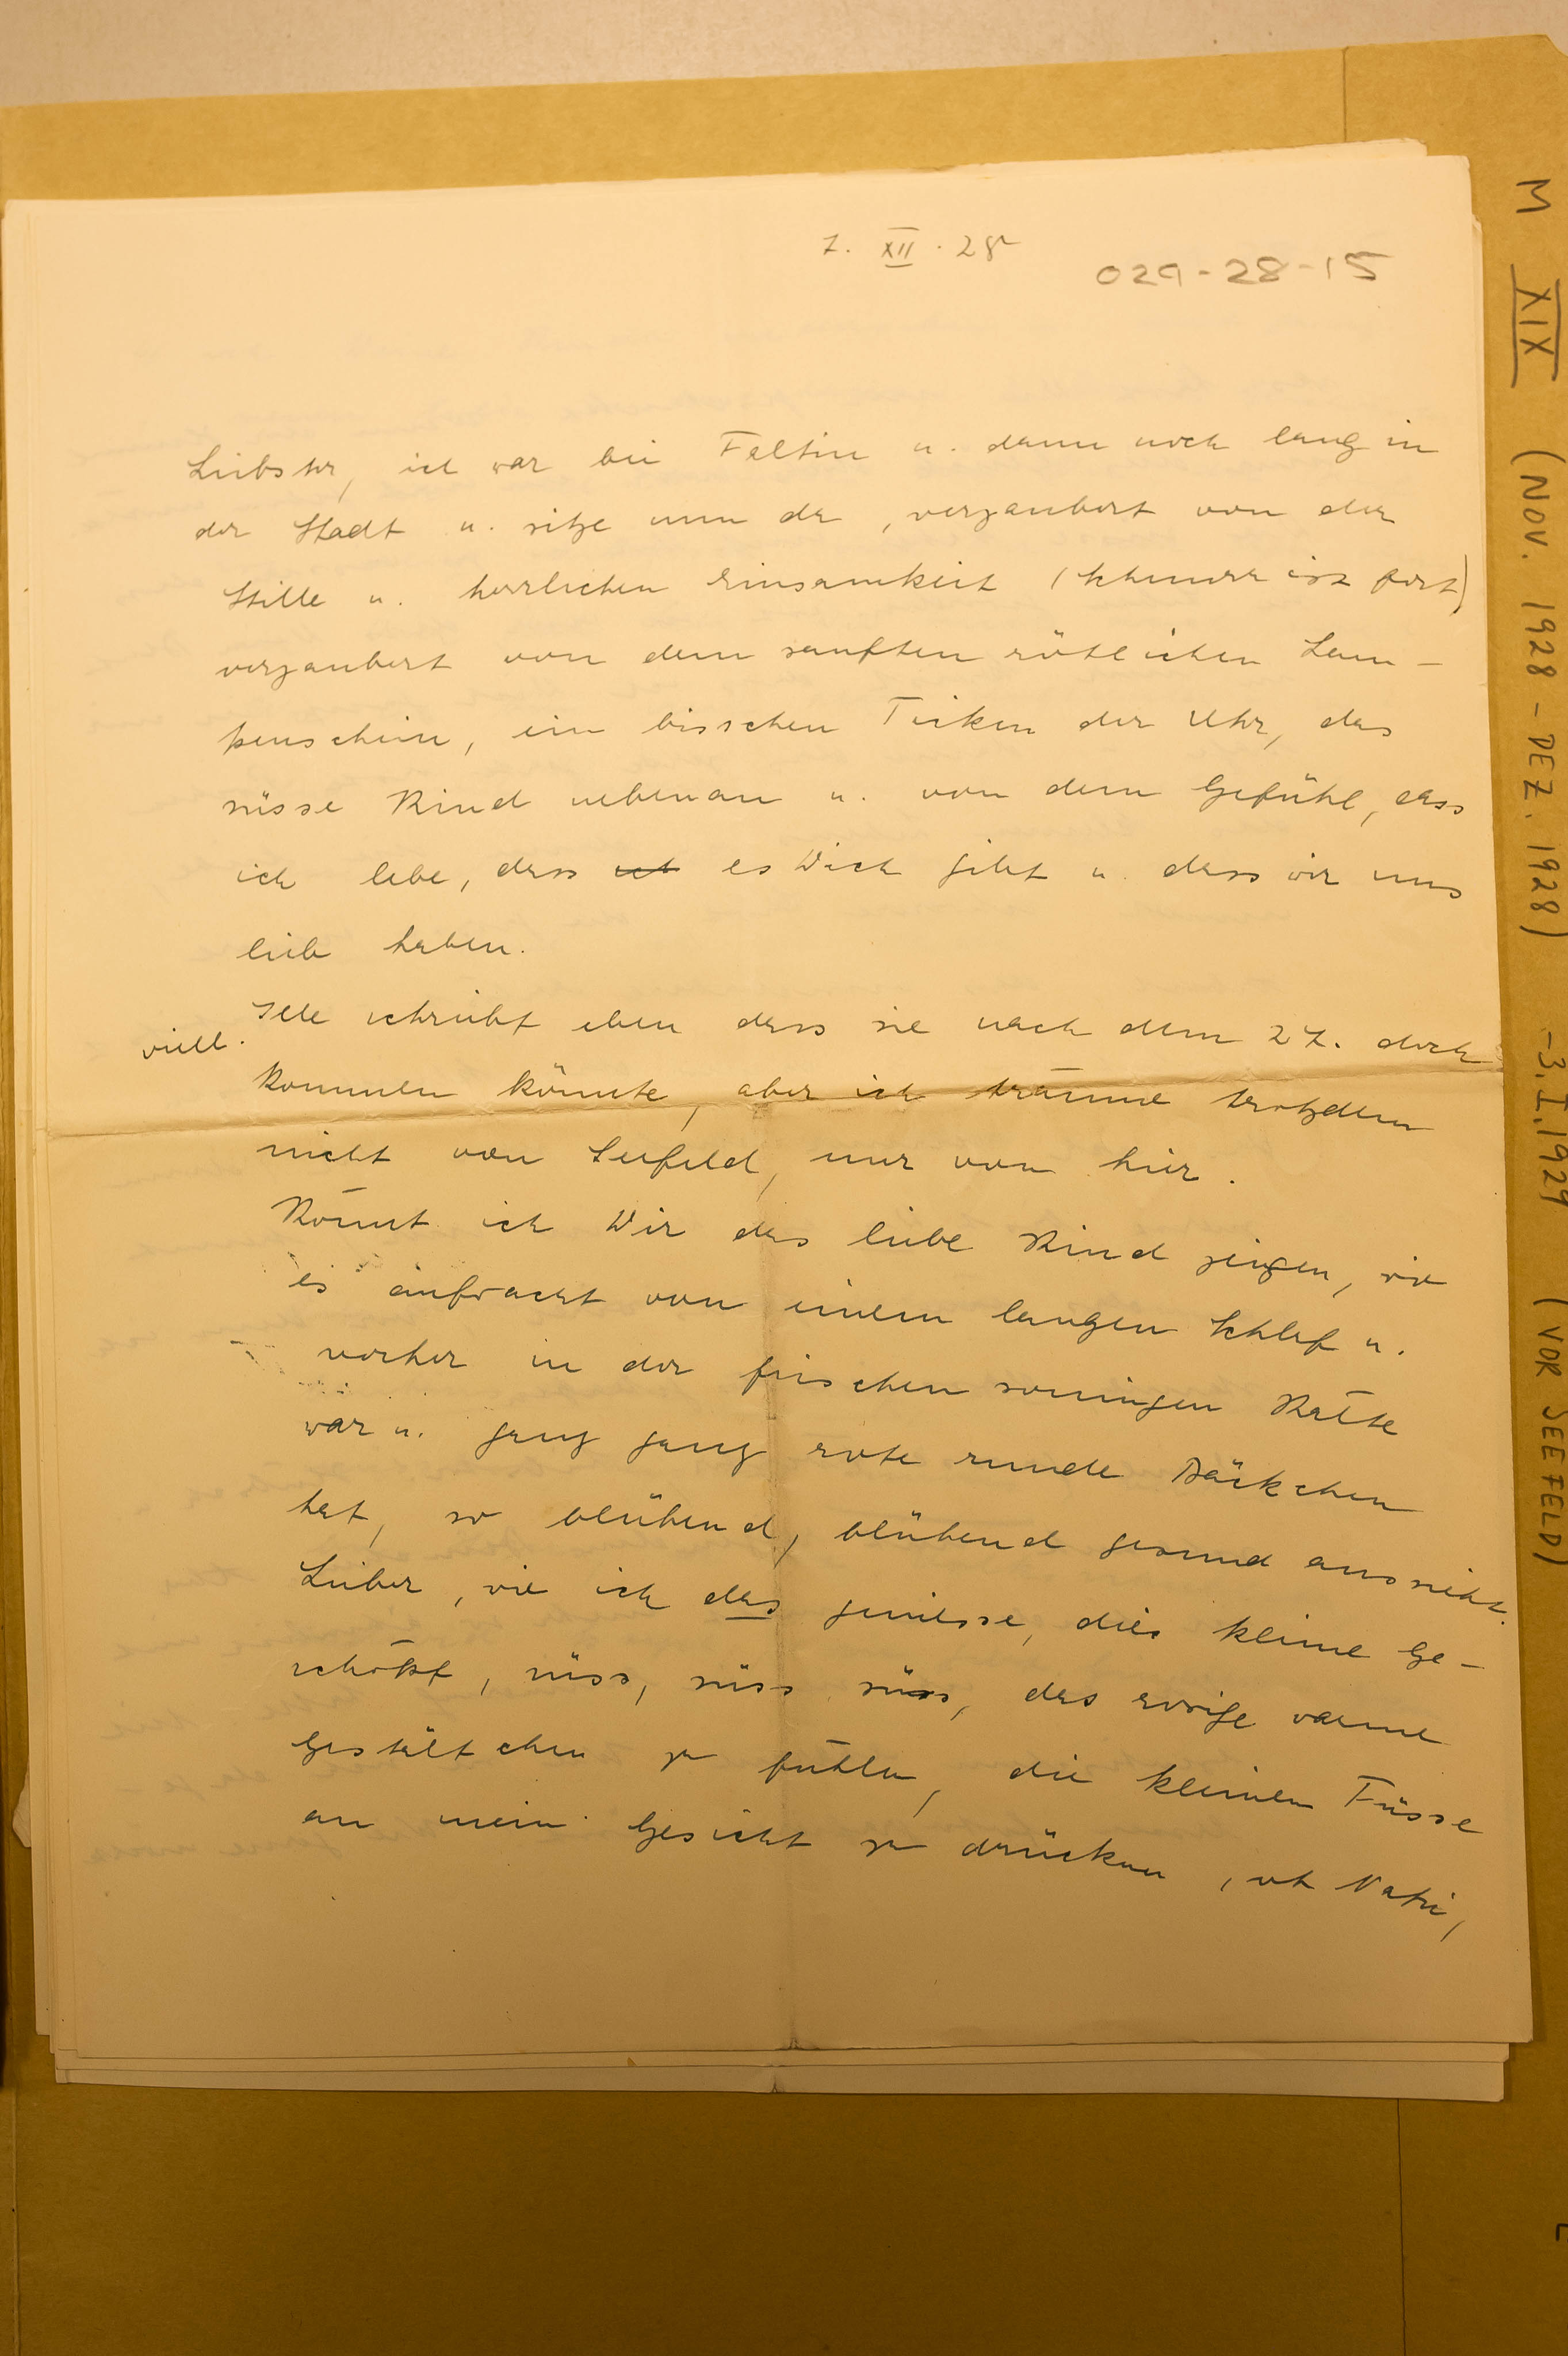 7. XII. 28
029-28-15
Liebster, ich war bei Feltin u. dann noch lang in
der Stadt u. sitze nun da, verzaubert von der
Stille u. herrlichen Einsamkeit (Schnurr ist fort)
verzaubert von dem sanften rötlichen Lam-
penschein, ein bisschen Ticken der Uhr, das
süsse Kind nebenan u. von dem Gefühl, dass
ich lebe, dass ich es Dich gibt u. dass wir uns
lieb haben.
viell.
schreibt eben dass sie nach dem 27. doch
kommen könnte, aber ich träume trotzdem
nicht von Seefeld, nur von hier.
Könnt ich Dir das liebe Kind zeigen, wie
es aufwacht von einem langen Schlaf u.
vorher in der frischen sonnigen Kälte
war u. ganz ganz rote runde Bäckchen
hat, so blühend, blühend gesund aussieht.
Lieber, wie ich das geniesse, dies kleine Ge-
schöpf, süss, süss süss, das rosige warme
Gestältchen zu fühlen, die kleinen Füsse
an mein Gesicht zu drücken,
M XIX (NOV. 1928 - DEZ. 1928) -3.I.1929 (VOR SEEFELD)